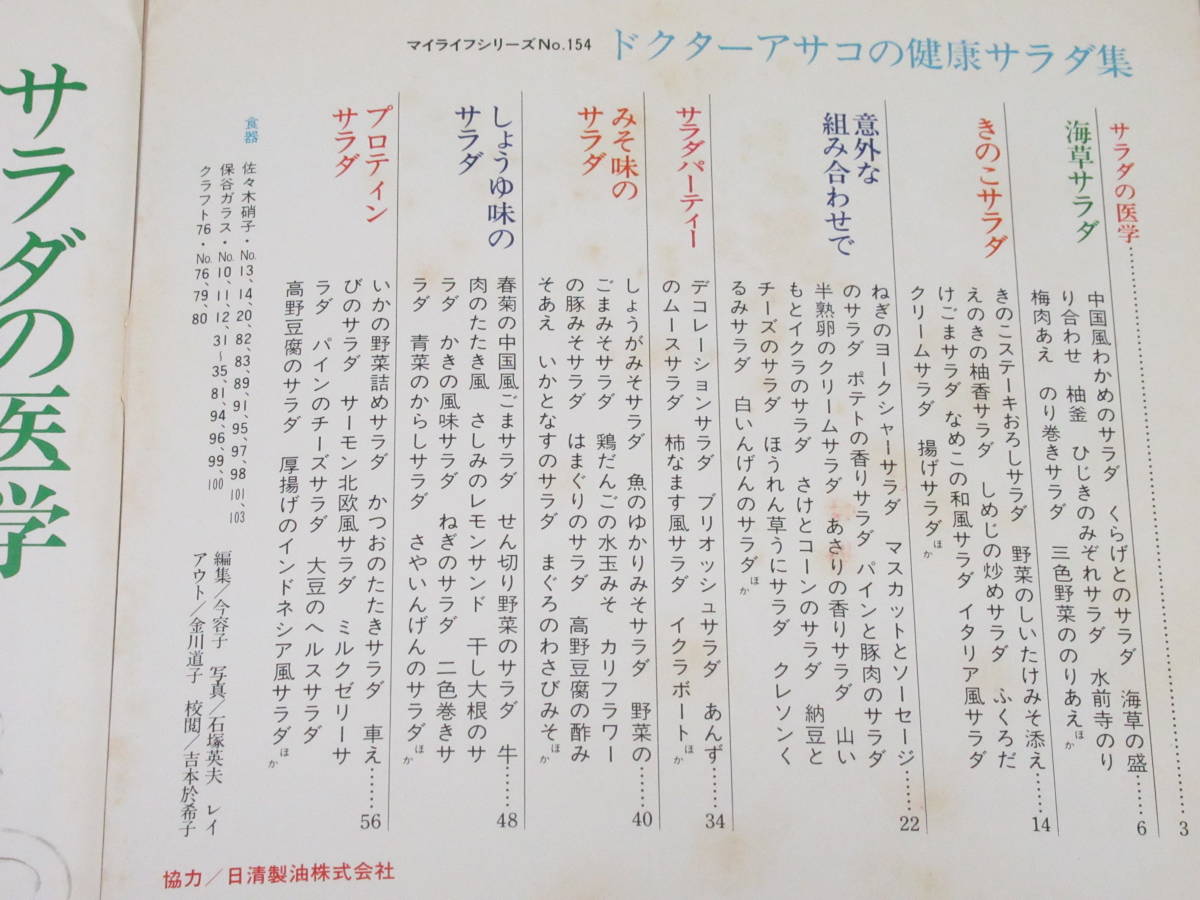 マイライフシリーズNo.154
ドクターアサコの健康サラダ集
サラダの医学……3
海草サラダ
中国風わかめのサラダ くらげとのサラダ 海草の盛……6
り合わせ 柚釜 ひじきのみぞれサラダ 水前寺のり
梅肉あえ のり巻きサラダ 三色野菜ののりあえほか
きのこサラダ
きのこステーキおろしサラダ 野菜のしいたけみそ添え……14
えのきの柚香サラダ しめじの炒めサラダ ふくろだ
けごまサラダ なめこの和風サラダ イタリア風サラダ
クリームサラダ 揚げサラダほか
意外な
組み合わせで
ねぎのヨークシャーサラダ マスカットとソーセージ……22
のサラダ ポテトの香りサラダ パインと豚肉のサラダ
半熟卵のクリームサラダ あさりの香りサラダ 山い
もとイクラのサラダ さけとコーンのサラダ 納豆と
チーズのサラダ ほうれん草うにサラダ クレソンく
るみサラダ 白いんげんのサラダほか
サラダパーティー
デコレーションサラダ ブリオッシュサラダ あんず……34
のムースサラダ 柿なます風サラダ イクラボートほか
みそ味の
サラダ
しょうがみそサラダ 魚のゆかりみそサラダ 野菜の……40
ごまみそサラダ 鶏だんごの水玉みそ カリフラワー
の豚みそサラダ はまぐりのサラダ 高野豆腐の酢み
そあえ いかとなすのサラダ まぐろのわさびみそほか
しょうゆ味の
サラダ
春菊の中国風ごまサラダ せん切り野菜のサラダ 牛……48
肉のたたき風 さしみのレモンサンド 干し大根のサ
ラダ かきの風味サラダ ねぎのサラダ 二色巻きサ
ラダ 青菜のからしサラダ さやいんげんのサラダほか
プロティン
サラダ
いかの野菜詰めサラダ かつおのたたきサラダ 車え……56
びのサラダ サーモン北欧風サラダ ミルクゼリーサ
ラダ パインのチーズサラダ 大豆のヘルスサラダ
高野豆腐のサラダ 厚揚げのインドネシア風サラダほか
食器
佐々木硝子・No.13、14、20、82、83、89、91、95、97、98 101、103
保谷ガラス・No.10、11、12、31〜35、81、94、96、99、100
クラフト76・No.76、79、80
編集／今容子 写真／石塚英夫 レイ
アウト／金川道子 校閲／吉本於希子
協力／日清製油株式会社
サラダの医学